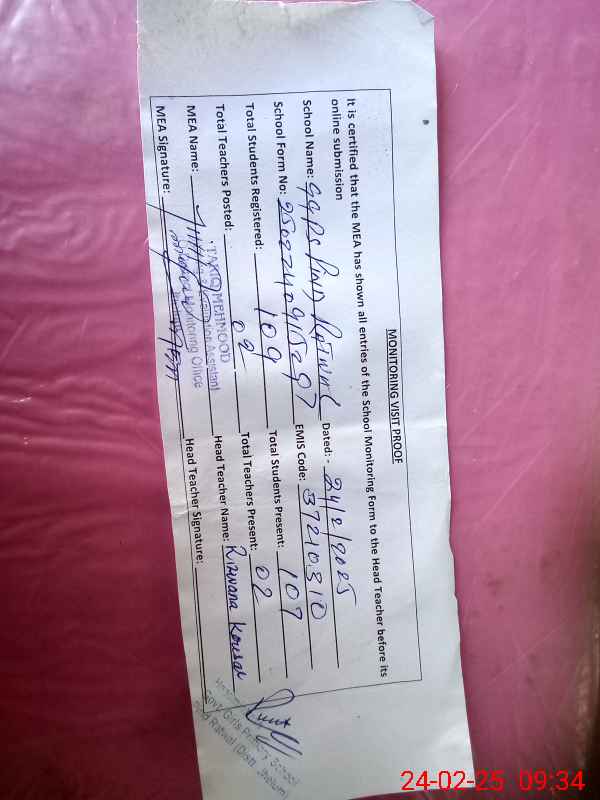 MONITORING VISIT PROOF
It is certified that the MEA has shown all entries of the School Monitoring Form to the Head Teacher before its
online submission
School Name: GGPS Pind Ratwal Dated: - 24/2/2025
School Form No: EMIS Code: 37210310
Total Students Registered: 109 Total Students Present: 107
Total Teachers Posted: 02 Total Teachers Present: 02
MEA Name: TARIQ MEHMOOD Head Teacher Name: Rizwana Kousar
MEA Signature: Head Teacher Signature:
Assistant
Monitoring Office
Govt. Girls Primary School
Pind Ratwal (Distt. Jhelum)
24-02-25 09:34